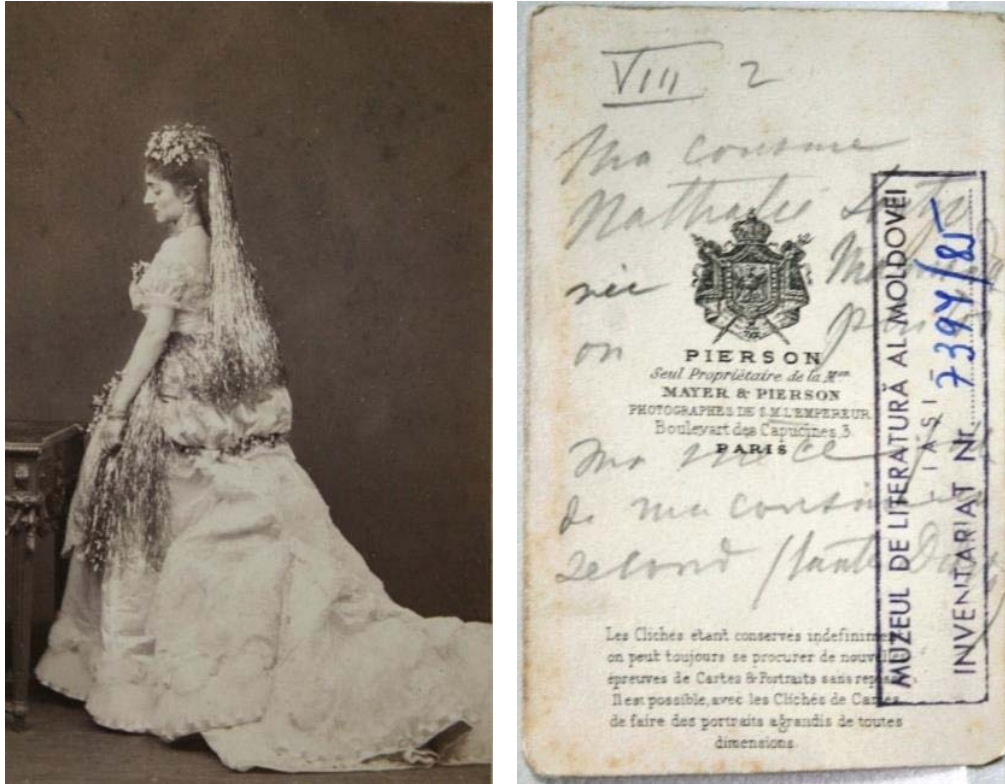 VIII 2
Ma cousine
Nathalie
née
on
PIERSON
Seul Propriétaire de la Mon
MAYER & PIERSON
PHOTOGRAPHES DE S.M.L'EMPEREUR
Boulevart des Capucines, 3.
PARIS
Ma nièce
de ma cousine
second
Les Clichés étant conservés indéfiniment
on peut toujours se procurer de nouvelles
épreuves de Cartes & Portraits sans reposer
Il est possible, avec les Clichés de Cartes,
de faire des portraits agrandis de toutes
dimensions.
MUZEUL DE LITERATURĂ AL MOLDOVEI
- IAȘI -
INVENTARIAT Nr. 7394/85